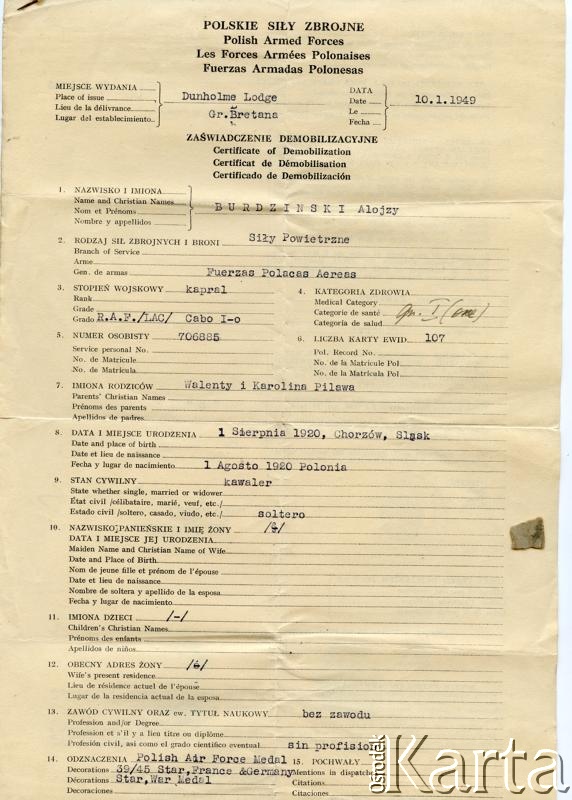 POLSKIE SIŁY ZBROJNE
Polish Armed Forces
Les Forces Armées Polonaises
Fuerzas Armadas Polonesas
MIEJSCE WYDANIA
Place of issue
Lieu de la délivrance
Lugar del establecimiento
Dunholme Lodge
Gr.Bretana
DATA
Date
Le
Fecha
10.1.1949
ZAŚWIADCZENIE DEMOBILIZACYJNE
Certificate of Demobilization
Certificat de Démobilisation
Certificado de Demobilización
1. NAZWISKO I IMIONA
Name and Christian Names
Nom et Prénoms
Nombre y appellidos
BURDZINSKI Alojzy
2. RODZAJ SIŁ ZBROJNYCH I BRONI Siły Powietrzne
Branch of Service
Arme
Gen. de armas Fuerzas Polacas Aereas
3. STOPIEŃ WOJSKOWY kapral
Rank
Grade
Grado R.A.F./LAC/ Cabo I-o
4. KATEGORIA ZDROWIA
Medical Category
Categorie de santé
Categoria de salud
gr. I (one)
5. NUMER OSOBISTY 706885
Service personal No.
No. de Matricule
No. de Matricula
6. LICZBA KARTY EWID. 107
Pol. Record No.
No. de la Matricule Pol
No. de la Matricula Pol
7. IMIONA RODZICÓW Walenty i Karolina Pilawa
Parents' Christian Names
Prénoms des parents
Apellidos de padres
8. DATA I MIEJSCE URODZENIA 1 Sierpnia 1920, Chorzów, Sląsk
Date and place of birth
Date et lieu de naissance
Fecha y lugar de nacimiento 1 Agosto 1920 Polonia
9. STAN CYWILNY kawaler
State whether single, married or widower
État civil /célibataire, marié, veuf, etc./
Estado civil /soltero, casado, viudo, etc./ soltero
10. NAZWISKO PANIEŃSKIE I IMIĘ ŻONY
DATA I MIEJSCE JEJ URODZENIA
Maiden Name and Christian Name of Wife
Date and Place of Birth
Nom de jeune fille et prénom de l'épouse
Date et lieu de naissance
Nombre de soltera y apellido de la esposa
Fecha y lugar de nacimiento
11. IMIONA DZIECI /-/
Children's Christian Names
Prénoms des enfants
Apellidos de niños
12. OBECNY ADRES ŻONY
Wife's present residence
Lieu de résidence actuel de l'épouse
Lugar de la residencia actual de la esposa
13. ZAWÓD CYWILNY ORAZ ew. TYTUŁ NAUKOWY bez zawodu
Profession and/or Degree
Profession et s'il y a lieu titre ou diplôme
Profesión civil, asi como el grado cientifico eventual sin profision
14. ODZNACZENIA Polish Air Force Medal
Decorations 39/45 Star, France &Germany
Décorations Star, War Medal
Decoraciones
15. POCHWAŁY
Mentions in dispatch
Citations
Citaciones
ośrodek Karta